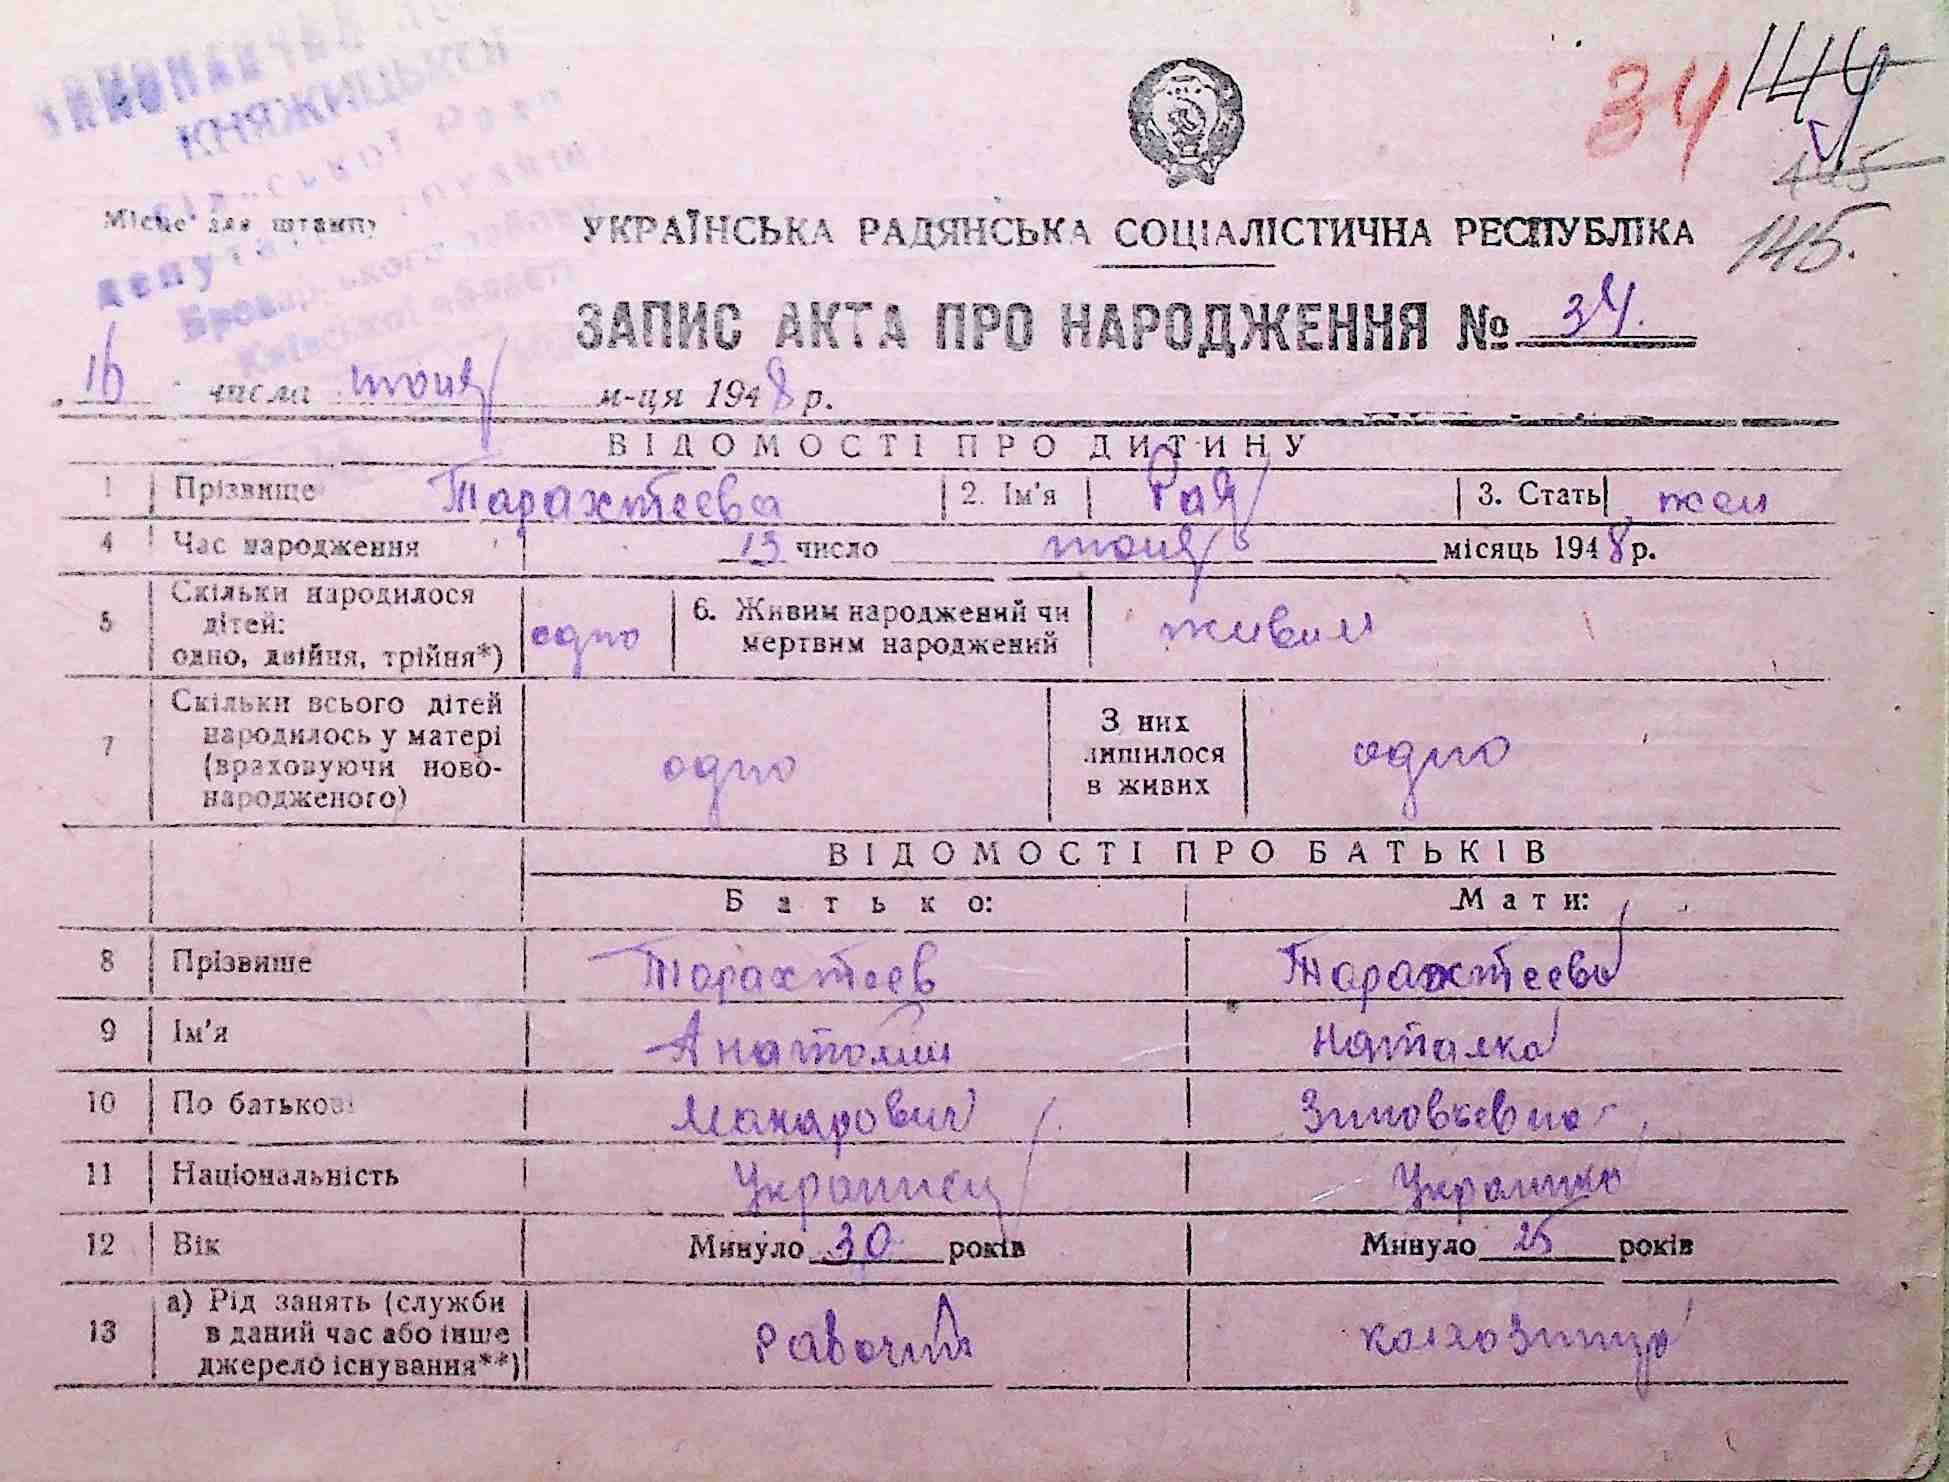 КНЯЖИЦЬКОЇ
34 144
145
145.
Місце для штампу
УКРАЇНСЬКА РАДЯНСЬКА СОЦІАЛІСТИЧНА РЕСПУБЛІКА
депу
Броварського
Київської області
ЗАПИС АКТА ПРО НАРОДЖЕННЯ № 34.
16 числа июня м-ця 1948 р.
ВІДОМОСТІ ПРО ДИТИНУ
1 Прізвище Тарахтеева 2. Ім'я Рая 3. Стать жен
4 Час народження 13 число июня місяць 1948 р.
5 Скільки народилося дітей: одно, двійня, трійня*) одно 6. Живим народжений чи мертвим народжений живим
7 Скільки всього дітей народилось у матері (враховуючи ново-народженого) одно З них лишилося в живих одно
ВІДОМОСТІ ПРО БАТЬКІВ
Батько: Мати:
8 Прізвище Тарахтеев Тарахтеева
9 Ім'я Анатолий Наталка
10 По батькові Макарович Зиновьевна
11 Національність Украинец Украинка
12 Вік Минуло 30 років Минуло 25 років
13 а) Рід занять (служби в даний час або інше джерело існування**) Рабочий колхозница